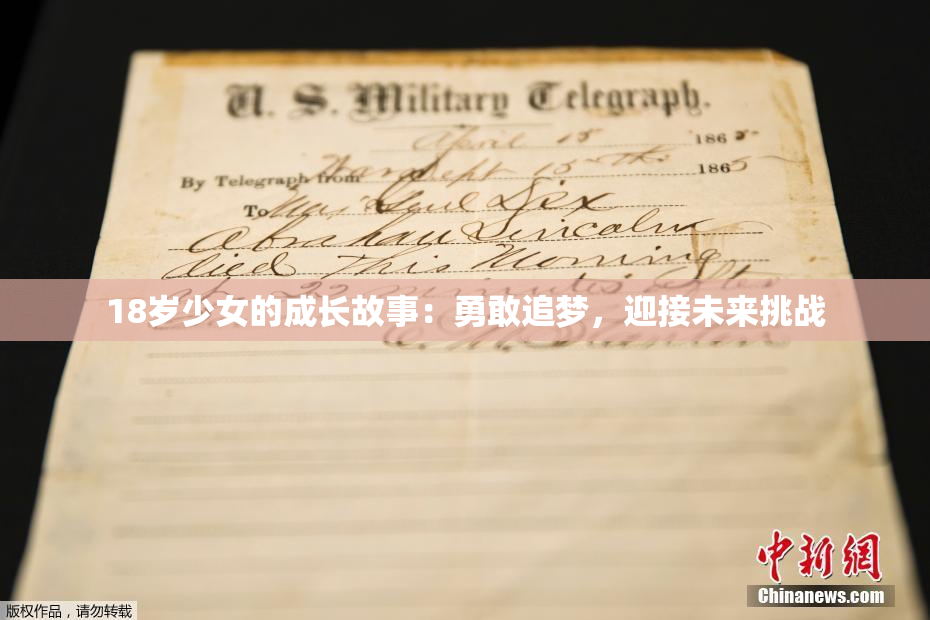 U. S. Military Telegraph.
April 15 1865
By Telegraph from War Dept 15th 1865
To Maj Genl Dix
Abraham Lincoln
died This Morning
22 minutes after
18岁少女的成长故事：勇敢追梦，迎接未来挑战
E. M. Stanton
中新网
Chinanews.com
版权作品，请勿转载